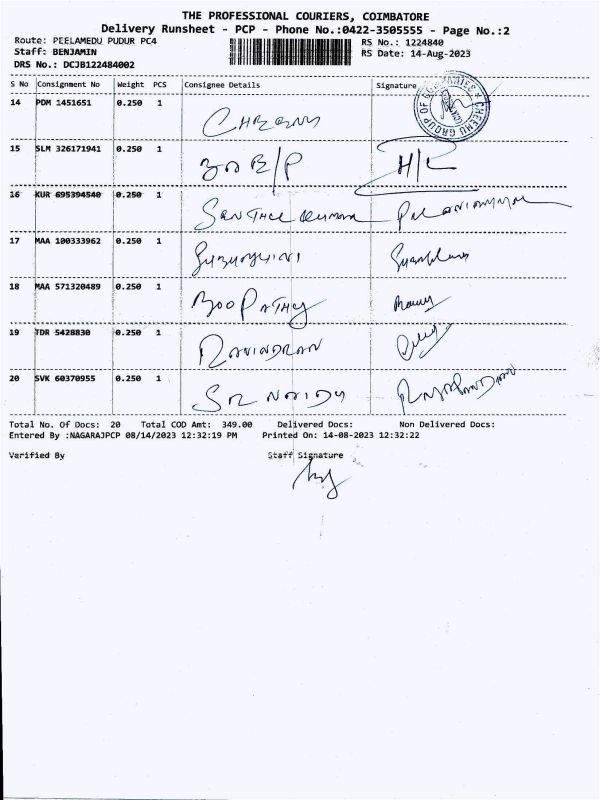 THE PROFESSIONAL COURIERS, COIMBATORE
Delivery Runsheet - PCP - Phone No.:0422-3505555 - Page No.:2
Route: PEELAMEDU PUDUR PC4
RS No.: 1224840
Staff: BENJAMIN
RS Date: 14-Aug-2023
DRS No.: DCJB122484002
S No Consignment No Weight PCS Consignee Details Signature
CHEENU GROUP OF COMPANIES
14 PDM 1451651 0.250 1
15 SLM 326171941 0.250 1 H/L
16 KUR 695394540 0.250 1 SENTHIL KUMAR PALANIAMMAL
17 MAA 100333962 0.250 1
18 MAA 571320489 0.250 1 BOOPATHY
19 TDR 5428830 0.250 1 RAVINDRAN
20 SVK 60370955 0.250 1 NAIDU RAJAPANDIAN
Total No. Of Docs: 20 Total COD Amt: 349.00 Delivered Docs: Non Delivered Docs:
Entered By :NAGARAJPCP 08/14/2023 12:32:19 PM Printed On: 14-08-2023 12:32:22
Verified By Staff Signature